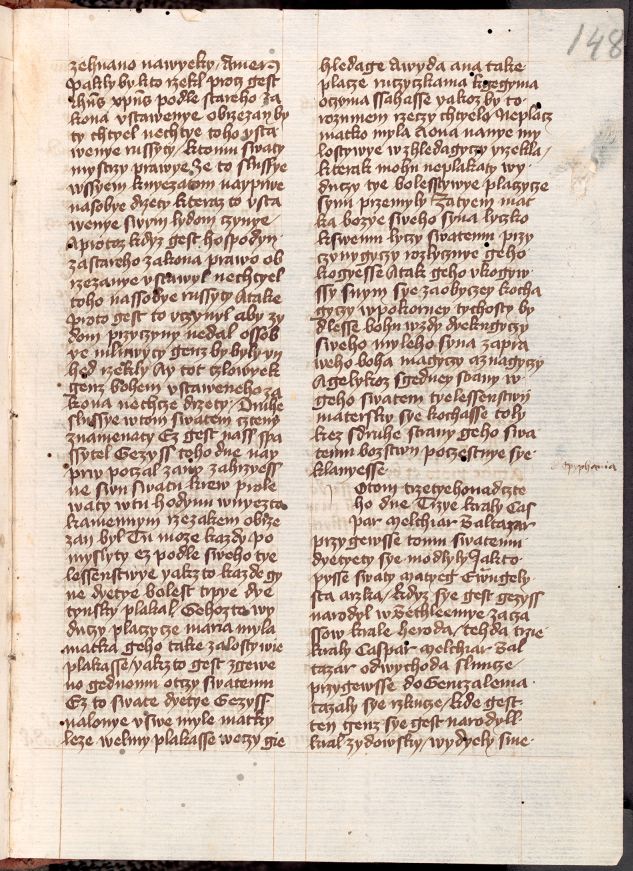 148
zehnano nawyeky Amen
Pakly by kto rzekl procz gest
podle stareho za
kona vstawenye obrzezan by
ty chtyel nechtye toho vsta
wenye russyty Ktomu swaty
mystrzy prawye ze to slussye
wssyem knyezatom nayprwe
nasobye drzety kteraz to vsta
wenye swym lydom czynye
Aprotoz kdyz gest hospodyn
zastareho zakona prawo ob
rzezanye vstawyl nechtyel
toho nassobye russyty Atake
proto gest to vczynyl aby zy
dom przyczyny nedal ossob
ye mluwyty genz by byly yn
hed rzekly Ay tot czlowyek
genz bohem vstaweneho za
kona nechcze drzety Druhe
slussye w tom swatem czteny
znamenaty Ez gest nass spa
ssytel Gezyss toho dne nay
prw poczal zany zahrzyess
ne swu swatu krew prole
waty w tu hodynu w nyezto
kamennym rzezakem obrze
zan byl Tu moze kazdy po
myslyty ez podle sweho tye
lessenstwye yakzto kazde gy
ne dyetye bolest trpye dye
tynsky plakal Gehozto wy
duczy placzycze maria myla
matka geho take zalostywie
plakasse yakzto gest zgewe
no gednomu otczy swatemu
Ez to swate dyetye Gezyss
malonye v swe myle matky
leze welmy plakasse weczy gie
hledage Awyda ana take
placze ruczyczkama k gegyma
oczyma ssahasse yakoz by to
rozumem rzeczy chtyelo Neplacz
matko myla Aona nanye my
lostywye wzhledagyczy wzrzekla
kterak mohu neplakaty wy
duczy tye bolesstywye placzycze
synu przemyly Zatyem mat
ka bozye sweho syna lyczko
k swemu lyczy swatemu przy
czynygyczy rozlycznye geho
kogyesse Atak geho vkogyw
ssy s nym sye zaobyczey kocha
gyczy w pokorney tychosty by
dlesse bohu wzdy dyekugyczy
Sweho myleho syna zapra
weho boha magyczy a znagyczy
Agelykoz s gedney strany w
geho swatem tyelessenstwy
matersky sye kochasse toly
kez s druhe strany geho swa
temu bozstwu poczestnye sye
klanyesse
epyphania
Otom trzetyehonadczte
ho dne Trzye kraly Cas
par Melchiar Baltazar
przygewsse tomu swatemu
dyetyety sye modlyly Jakto
pysse swaty Matyeg Ewngely
sta arzka Kdyz sye gest gezyss
narodyl w Bethleemye zacza
ssow krale heroda tehda trzie
kraly Caspar Melchiar Bal
tazar od wychoda sluncze
przygewsse do Geruzalema
tazaly sye rzkucze kde gest
ten genz sye gest narodyl
kral zydowsky wydyely sme